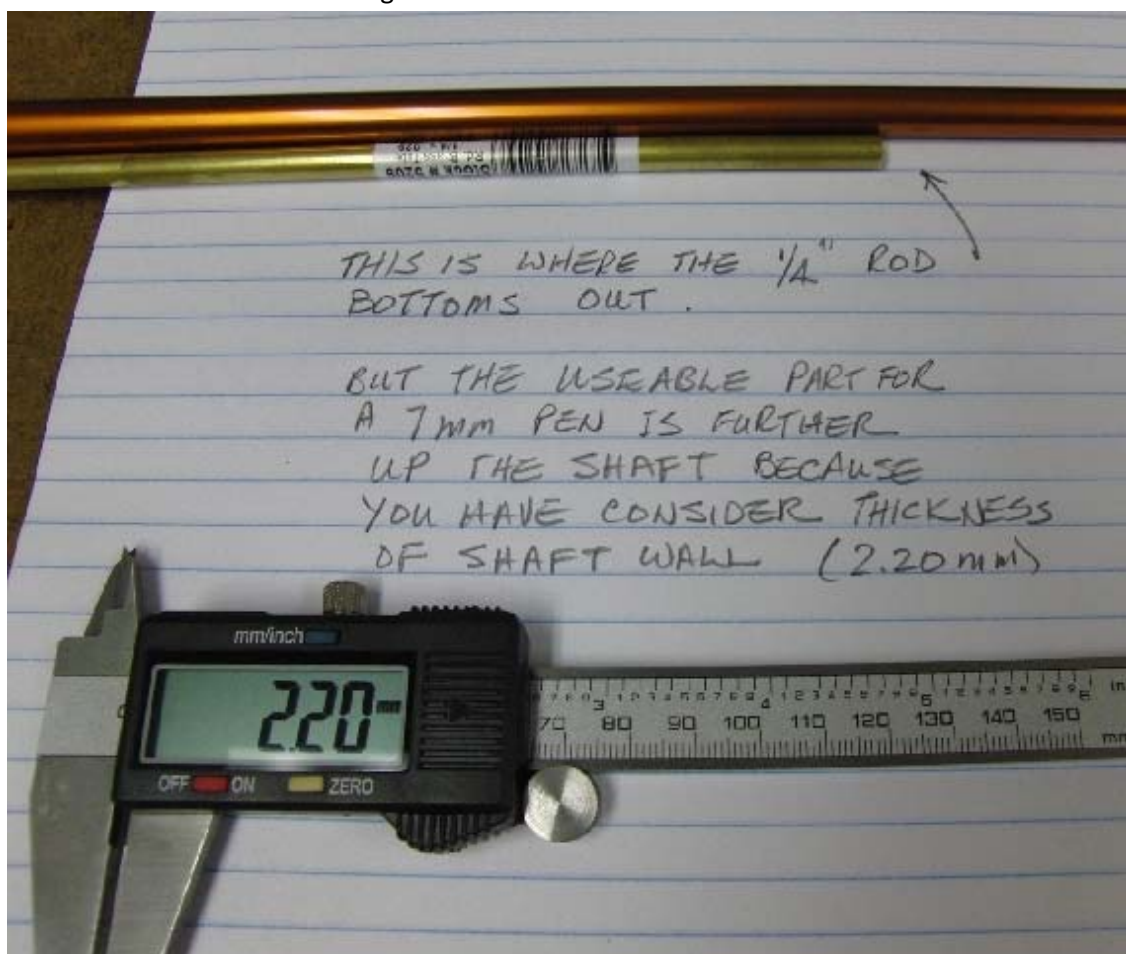 STOCK # 8209
THIS IS WHERE THE 1/4" ROD
BOTTOMS OUT.
BUT THE USEABLE PART FOR
A 7mm PEN IS FURTHER
UP THE SHAFT BECAUSE
YOU HAVE CONSIDER THICKNESS
OF SHAFT WALL (2.20 mm)
mm/inch
2.20 mm
OFF ON ZERO
3 4 5 6 in
70 80 90 100 110 120 130 140 150
mm